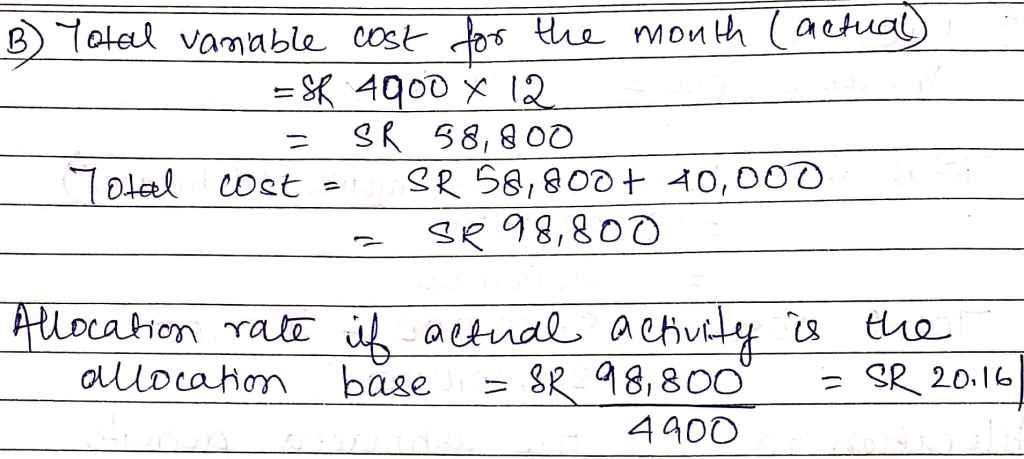 B) Total variable cost for the month (actual)
= SR 4900 x 12
= SR 58,800
Total cost = SR 58,800 + 40,000
= SR 98,800
Allocation rate if actual activity is the
allocation base = SR 98,800 = SR 20.16|
4900